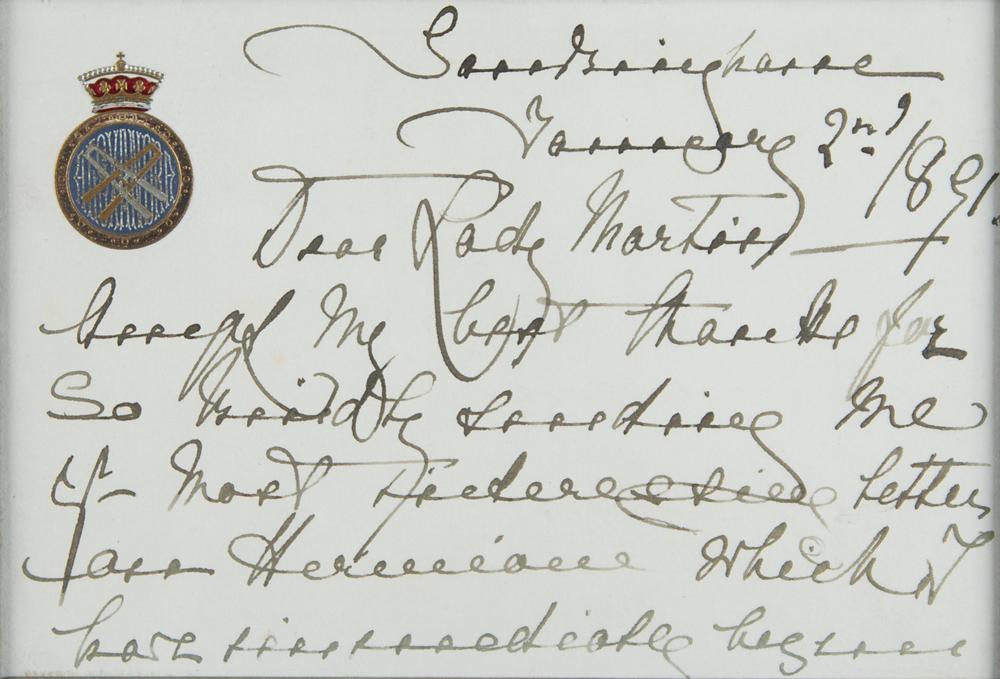 Sandringham
January 2nd 1891.
Dear Lady Martin
Accept My best thanks for
So kindly sending Me
yr Most interesting letter
on Hermione Which I
have immediately begun